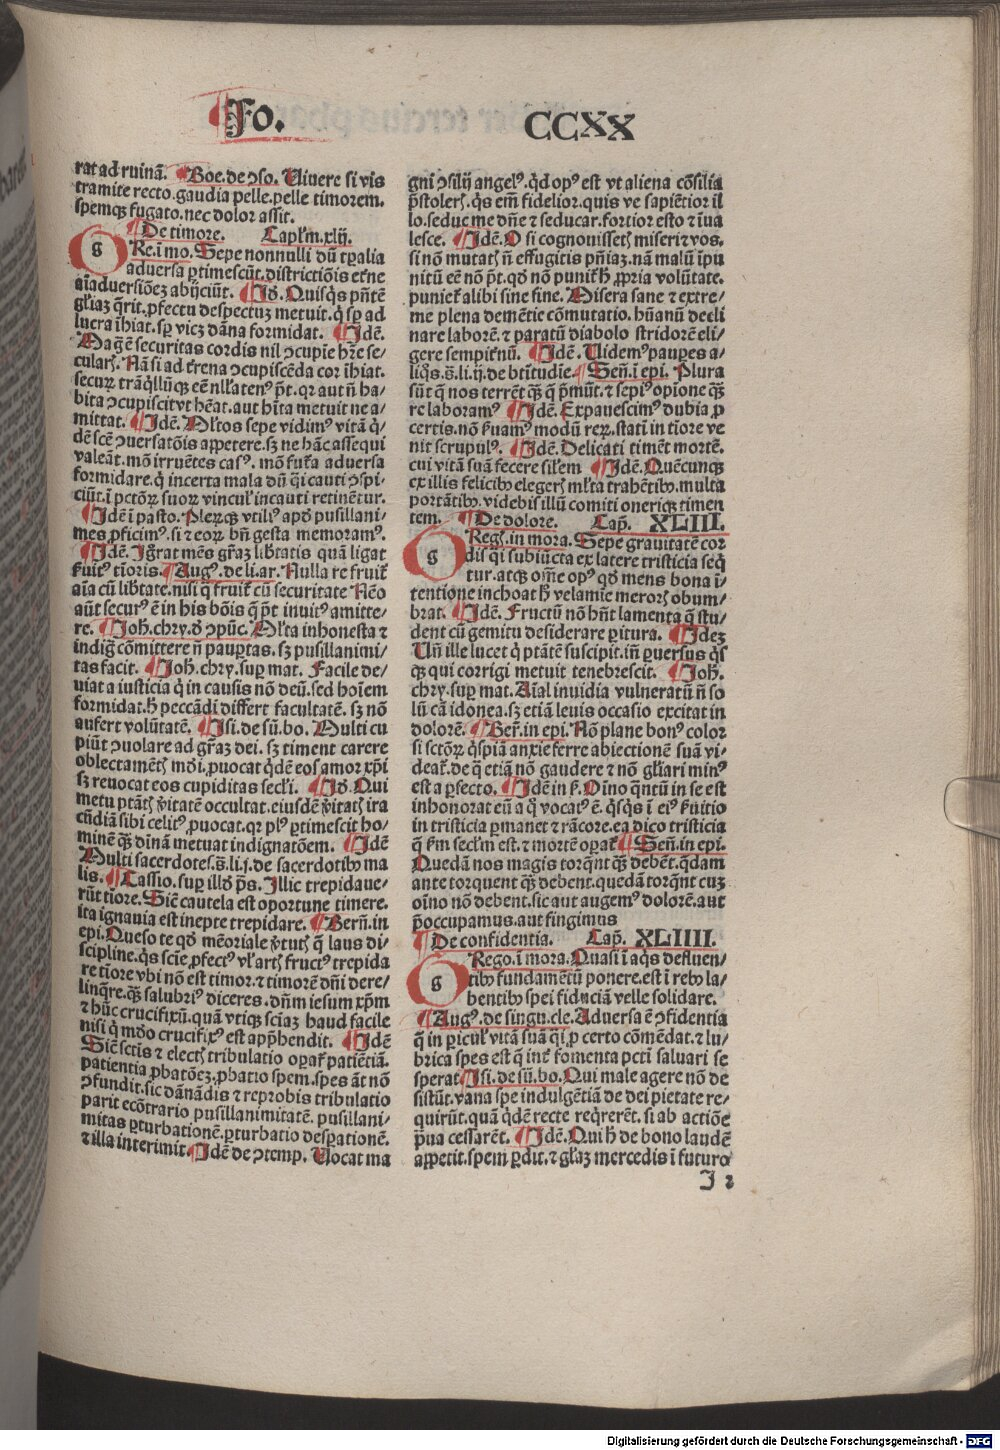 Fo. CCXX
rat ad ruinā. Boe. de ↄso. Uiuere si vis
tramite recto. gaudia pelle. pelle timorem.
spemqꝫ fugato. nec dolor assit.
De timore. Capl'm. xlij.
g Re. ī mo. Sepe nonnulli dū tꝑalia
aduersa ꝑtimescūt. districtiōis etne
aīaduersiōeꝫ abijciūt. Idē. Quisq̇s pn̄te
gl'iaꝫ q̄rit. ꝓfectu despectuꝫ metuit. q̇ sꝑ ad
lucra īhiat. sꝑ vicꝫ dāna formidat. Idē.
Magē securitas cordis nil ↄcupie hr̄e se-
cularꝭ. Nā si ad terena ↄcupiscēda cor īhiat.
securꝫ trāq̇llūqꝫ eē nll'atenꝰ pōt. qꝛ aut nō ha-
bita ↄcupiscit vt heat. aut hīta metuit ne a-
mittat. Idē. Ml'tos sepe vidimꝰ vitā q̇-
dē scē ↄuersatōis appetere. sꝫ ne hāc assequi
valeāt. mō irruētes casꝰ. mō futa aduersa
formidare. q̇ incerta mala dū q̄i cauti ↄspi-
ciūt. ī pctōꝝ suoꝝ vincul' incauti retinētur.
Idē ī pasto. Pleꝝqꝫ vtiliꝰ apd pusillani-
mes ꝓficimꝰ. si ⁊ eoꝝ bn̄ gesta memoramꝰ.
Idē. Igrat mēs gr̄az libtatis quā ligat
ẜuitꝰ tīoris. Augꝰ. de li. ar. Nulla re fruit
aīa cū libtate. nisi q̄ fruit cū securitate Nēo
aūt securꝰ ē in his bōis q̄ pōt inuitꝰ amitte-
re. Joh. chry. ð ↄpūc. Ml'ta inhonesta ⁊
indiḡ cōmittere nō pauptas. sꝫ pusillanimi-
tas facit. Joh. chry. suꝑ mat. Facile de-
uiat a iusticia q̇ in causis nō deū. sed hoīem
formidat. h peccādi differt facultatē. sꝫ nō
aufert volūtatē. Isi. de sū. bo. Multi cu
piūt ↄuolare ad gr̄aꝫ dei. sꝫ timent carere
oblectamētꝭ mūdi. ꝓuocat q̇dē eos amor xp̄i
sꝫ reuocat eos cupiditas secl'i. Idē. Qui
metu ptātꝭ v̄itatē occultat. eiusdē v̄itatꝭ ira
cūdiā sibi celitꝰ ꝓuocat. qꝛ plꝰ ꝑtimescit ho-
minē qꝫ diuinā metuat indignatōem. Idē
Multi sacerdotes. s. li. j. de sacerdotibꝰ ma
lis. Cassio. suꝑ illð ps. Illic trepidaue-
rūt tiore. Sic̄ cautela est oportune timere.
ita ignauia est inepte trepidare. Bern̄. in
epi. Queso te qð mēoriale v̄tutꝭ q̄ laus di-
scipline. q̇s scīe ꝓfectꝰ vl' artꝭ fructꝰ trepida
re tiore vbi nō est timor. ⁊ timorē dn̄i dere-
linq̄re. qꝫ salubriꝰ diceres. dn̄m iesum xp̄m
⁊ hūc crucifixū. quā vtiqꝫ scīaꝫ haud facile
nisi q̇ mūdo crucifixꝰ est appᵽhendit. Idē
Sic̄ sctīs ⁊ electꝭ tribulatio oꝑat patiētiā.
patientia ꝓbatōeꝫ. ꝓbatio spem. spes āt nō
ↄfundit. sic dānādis ⁊ reprobis tribulatio
parit ecōtrario pusillanimitatē. pusillani-
mitas ꝑturbationē. ꝑturbatio despationē.
⁊ illa interimit. Idē de ↄtemp. Uocat ma
gni ↄsilij angelꝰ. q̇d opꝰ est vt aliena cōsilia
pstolerꝭ. q̇s em̄ fidelior. quis ve sapiētior il
lo. seduc me dn̄e ⁊ seducar. fortior esto ⁊ īua
lesce. Idē. O si cognouissetꝭ miseri ⁊ vos.
si nō mutatꝭ nō effugitis pn̄iaꝫ. nā malū īpu
nitū eē nō pōt. qð nō punit h ꝓpria volūtate.
puniet alibi sine fine. Misera sane ⁊ extre-
me plena demētie cōmutatio. hūanū decli
nare laborē. ⁊ paratū diabolo stridorē eli-
gere sempitnū. Idē. Uidemꝰ pauꝑes a-
liq̇s. s. li. ij. de btītudie. Sen̄. ī epi. Plura
sūt q̄ nos terrēt qꝫ q̄ pmūt. ⁊ sepiꝰ opione qꝫ
re laboramꝰ Idē. Expauescimꝰ dubia ꝓ
certis. nō ẜuamꝰ modū reꝝ. statī in tīore ve
nit scrupulꝰ. Idē. Delicati timēt mortē.
cui vitā suā fecere silem Idē. Quēcunqꝫ
ex illis felicibꝰ elegerꝭ ml'ta trahētibꝰ. multa
portātibꝰ. videbis illū comiti oneriqꝫ timen
tem. De dolore. Cap. XLIII.
g Regꝭ. in mora. Sepe grauitatē cor
dis q̄i subiūcta ex latere tristicia seq̄
tur. atqꝫ om̄e opꝰ qð mens bona ī-
tentione inchoat h velamie merorꝭ obum-
brat. Idē. Fructū nō hn̄t lamenta q̄ stu-
dent cū gemitu desiderare ꝑitura. Ideꝫ
Un̄ ille lucet q̇ ptātē suscipit. in̄ ꝑuersus q̇s
qꝫ qui corrigi metuit tenebrescit. Joh.
chry. suꝑ mat. Aīal inuidia vulneratū nō so
lū cā idonea. sꝫ etiā leuis occasio excitat in
dolorē. Ber̄. in epi. Nō plane bonꝰ color
si sctōꝝ q̇spiā anxie ferre abiectionē suā vi-
deat. de q̄ etiā nō gaudere ⁊ nō gl'iari minꝰ
est a ꝑfecto. Idē in ẜ. Oīno q̄ntū in se est
inhonorat eū a q̇ vocatꝰ ē. q̇sq̇s ī eiꝰ ẜuitio
in tristicia ꝑmanet ⁊ rācore. ea dico tristicia
q̄ ẜm secl'm est. ⁊ mortē oꝑat Sen̄. in epi.
Quedā nos magis torq̄nt qꝫ debēt. q̄dam
ante torquent qꝫ debent. quedā torq̄nt cuꝫ
oīno nō debent. sic aut augemꝰ dolorē. aut
p̄occupamus. aut fingimus
De confidentia. Cap. XLIIII.
g Rego. ī mora. Quasi ī aq̇s defluen-
tibꝰ fundamētū ponere. est ī rebꝰ la-
bentibꝰ spei fiduciā velle solidare.
Augꝰ. de singu. cle. Aduersa ē ↄfidentia
q̄ in ꝑicul' vitā suā q̄i ꝓ certo cōmēdat. ⁊ lu-
brica spes est q̄ int fomenta pcti saluari se
sperat. Isi. de sū. bo. Qui male agere nō de
sistūt. vana spe indulgētiā de dei pietate re-
quirūt. quā q̇dē recte req̄rerēt. si ab actiōe
p̄ua cessarēt. Idē. Qui h de bono laudē
appetit. spem ꝑdit. ⁊ gl'iaꝫ mercedis ī futuro
I 2
Digitalisierung gefördert durch die Deutsche Forschungsgemeinschaft - DFG